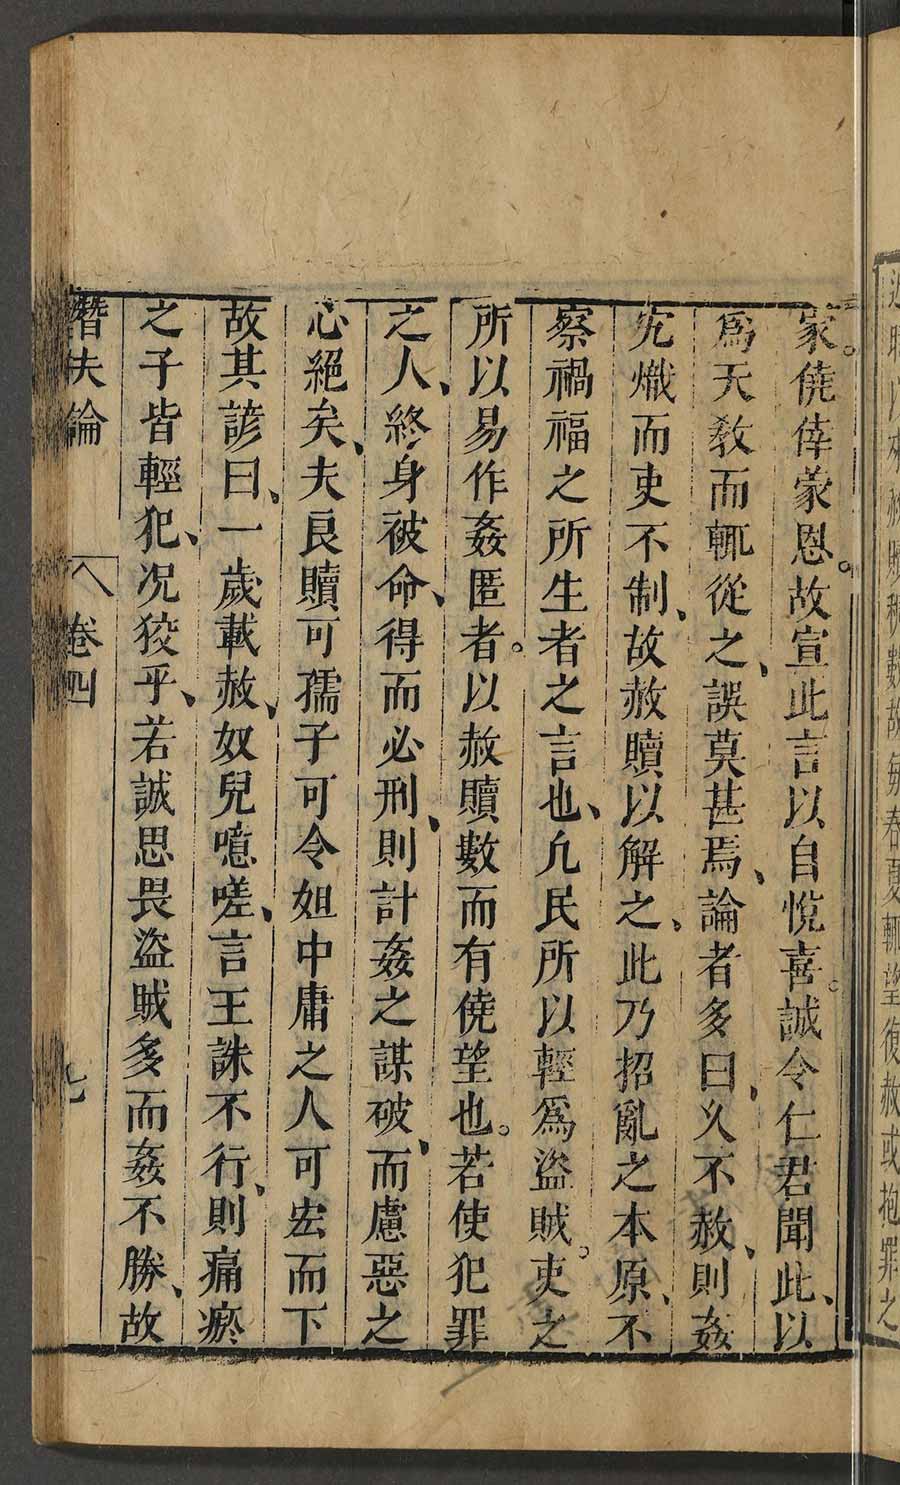 近時以來赦贖稠數故每春夏輒望復赦或抱罪之
家。僥倖蒙恩。故宣此言以自悅喜。誠令仁君聞此、以
爲天敎而輒從之、誤莫甚焉、論者多曰、久不赦、則姦
宄熾而吏不制、故赦贖以解之、此乃招亂之本原、不
察禍福之所生者之言也、凢民所以輕爲盜賊。吏之
所以易作姦匿者。以赦贖數而有僥望也。若使犯罪
之人、終身被命、得而必刑、則計姦之謀破、而慮惡之
心絕矣、夫良贖可孺子可令姐中庸之人可宏而下
故其諺曰、一歲載赦、奴兒噫嗟、言王誅不行、則痛瘀
之子皆輕犯、况狡乎、若誠思畏盜賊多而姦不勝、故
潛夫論 卷四 七